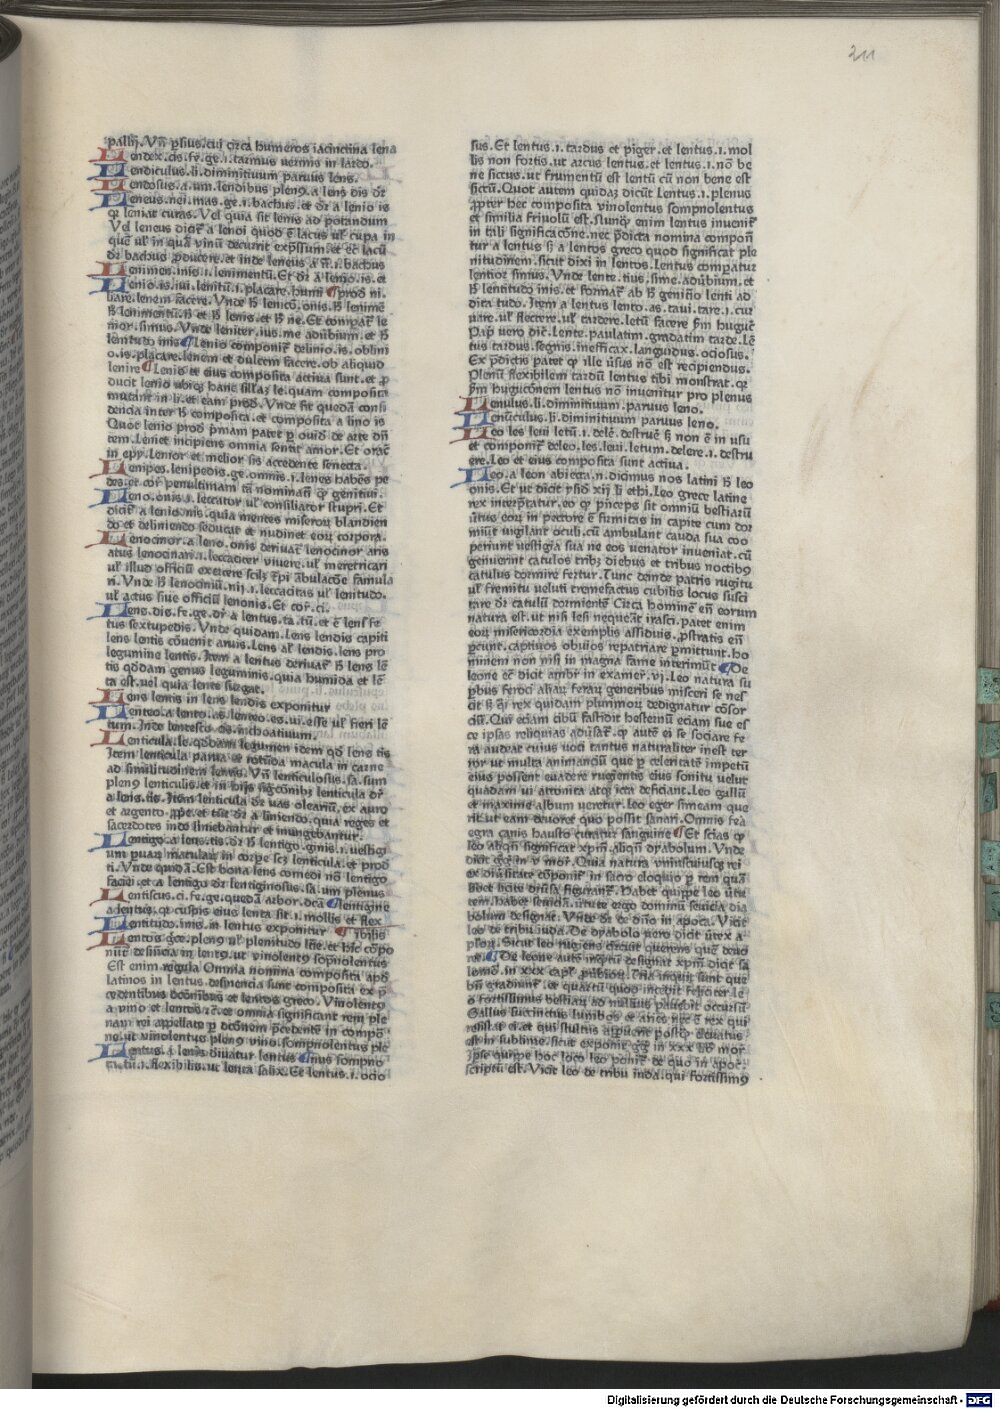 211
pallij. Vn̄ ꝑsius. cui circa humeros iacinctina lena
Lendex. cis. fe. ge. i. tarmus uermis in lardo.
Lendiculus. li. diminitiuum paruus lens.
Lendosus. a. um. lendibus plenꝰ. a lens dis dr̄
Leneus. nei. mas. ge. i. bachus. et dr̄ a lenio is
qr̄ leniat curas. Vel quia sit lenis ad potandum
Vel leneus dicit᷑ a lenoi quod ē lacus ul᷑ cupa in
quē ul᷑ in quā uinū decurrit exp̄ssum. et ec̄ lacū
dr̄ bachus ꝓducere. et inde leneus
Lenimen. inis. i. lenimentū. Et dr̄ a lenio. is. et
Lenio. is. iui. lenitū. i. placare.
liare. lenem facere. Vnde
lenimentū. et lenis. et ne. Et compat᷑ le
mor. simus. Vnde leniter. ius. me aduībium. et
lenitudo inis Lenio componit᷑ delinio. is. oblini
o. is. placare. lenem et dulcem facere. ob aliquid
lenire Lenio et eius composita actiua sunt. et ꝓ
ducit lenio ubiqꝫ hanc sillaꝫ le. quam composita
mutant in li. et eam prod̄. Vnde fit quedā consi
dencia inter composita. et composita a lino is
Quot lenio prod̄ pr̄mam patet ꝑ ouid̄ de arte
tem. Leniet incipiens omnia sentit amor. Et orac̄
in epy. Lenior et melior fis accedente senecta.
Lenipes. lenipedis. ge. omnis. i. lenes habēs pe
des. et cor̄ penultimam tā nominatī ꝙ genitiui.
Leno. onis. i. leccator ul᷑ consiliator stupri. Et
dicit᷑ a lenio. nis. quia mentes miseroꝝ blandien
do et deliniendo seducit et nudinet eoꝝ corpora.
Lenocinor. a leno. onis deriuat᷑ lenocinor aris
atus lenocinari. i. leccaciter uiuere. ul᷑ meretricari
ul᷑ illud officiū exercere
ri. Vnde lenociniū. nij. i. leccacitas ul᷑ lenitudo.
ul᷑ actus siue officiū lenonis. Et cor̄. ci.
Lens. dis. fe. ge. dr̄ a lentus. ta. tū. et ē lens
tus sextupedis. Vnde quidam. Lens lendis capiti
lens lentis cōuenit aruis. Lens al lendis. lens pro
legumine lentis. Item a lentus deriuat᷑ lens lē
tis qd̄dam genus leguminis. quia humida et lē
ta est. uel quia lente surgat.
Lens lentis in lens lendis exponitur
Lenteo. a lento. as. lenteo. es. ui. esse ul᷑ fieri lē
tum. Inde lentesco cis. inchoatiuum.
Lenticula. le. qd̄dam legumen idem qd̄ lens tis
Item lenticula parua et rotūda macula in carne
ad similitudinem lentis. Vn̄ lenticulosus. sa. sum
plenꝰ lenticulis. et in lenticula dr̄
a lens. tis. Item lenticula dr̄ uas olearium. ex auro
et argento a liniendo. quia reges et
sacerdotes inde liniebantur et inungebantur.
Lentigo. a lens. tis. dr̄ lentigo. ginis. i. uestigi
um paruaꝝ maculaꝝ in corpe scꝫ lenticula. et prod̄
ti. Vnde quidā. Est bona lens comedi non lentigo
faciei. et a lentigo dr̄ lentiginosus. sa. um plenus
Lentiscus. ci. fe. ge. quedā arbor. dcā lentigine
a lentus. qr̄ cuspis eius lenta sit. i. mollis et flex
Lentitudo. inis. in lentus exponitur ibilis
Lentos grece. plenꝰ ul᷑ plenitudo
desinēcia in lentꝰ. ut uinolentꝰ sopnolentus
Est enim regula Omnia nomina composita apd̄
latinos in lentus. desinencia sunt composita ex p̄
cedentibus et lentos greco. Vinolentꝰ
a uino et lentos omnia significant rem ple
nam rei appellate ꝑ dcōnem p̄cedentē in compo
ne. ut uinolentus plenꝰ uino. sompnolentus ple
Lentus. a lenis diuatur lentus nus sompno
i. flexibilis. ut lenta salix. Et lentus. i. ocio
sus. Et lentus. i. tardus et piger. et lentus. i. mol
lis non fortis. ut arcus lentus. et lentus. i. nō be
ne siccus. ut frumentū est lentū cū non bene est
siccū. Quot autem quidaꝫ dicūt Lentus. i. plenus
ꝓpter hec composita uinolentus sompnolentus
et similia friuolū est. Nunqꝫ enim lentus inuenit᷑
in tali significacōne. nec p̄dicta nomina componū
tur a lentus sꝫ a lentos greco quod significat ple
nitudinem. sicut dixi in lentos. Lentus compatur
lentior simus. Vnde lente. tius. sime. aduībium. et
lentitudo inis. et format᷑ ab genitio lenti ad
dita tudo. Item a lentus lento. as. taui. tare. i. cur
uare. ul᷑ flectere. ul᷑ tardere. letū facere fm̄ huguc̄
Pap̄ uero dic̄. Lente. paulatim. gradatim tarde. Lē
tus tardus. segnis. inefficax. languidus. ociosus.
Ex p̄dictis patet ꝙ ille ūsus nō est recipiendus.
Plenū flexibilem tardū lentus tibi monstrat. qr̄
fm̄ huguconem lentus nō inuenitur pro plenus
Lenulus. li. diminitiuum. paruus leno.
Lenūculus. li. diminitiuum paruus leno.
Leo les leui letū. i. delē. destruē sꝫ non ē in usu
et componit᷑ deleo. les. leui. letum. delere. i. destru
ere. Leo et eius composita sunt actiua.
Leo. a leon abiecta. n. dicimus nos latini leo
onis. Et ut dicit ysid̄ xij li ethi. Leo grece latine
rex interp̄tatur. eo ꝙ p̄nceps sit omniū bestiarū
ūtus eoꝝ in pectore ē firmitas in capite cum dor
miūt uigilant oculi. cū ambulant cauda sua coo
periunt uestigia sua ne eos uenator inueniat. cū
genuerint catulos tribꝫ diebus et tribus noctibꝰ
catulus dormire fertur. Tunc deinde patris rugitu
ul᷑ fremitu ueluti tremefactus cubilis locus susci
tare dr̄ catulū dormientē Circa hominē en̄ eorum
natura est. ut nisi lesi nequeāt irasci. patet enim
eoꝝ misericordia exemplis assiduis. ꝓstratis en̄
ꝑcunt. captiuos obuios repatriare ꝑmittunt. ho
minem non nisi in magna fame interimūt De
leone ec̄ dicit ambr̄ in examer̄. vj. Leo natura su
ꝑbus feroci aliaꝝ feraꝝ generibus misceri se nes
cit sꝫ q̄i rex quidam plurimoꝝ dedignatur cōsor
ciū. Qui eciam cibū fastidit hesternū eciam sue es
ce ipsas reliquias aduersat᷑. ꝙ autē ei se sociare fe
ra audeat cuius uoci tantus naturaliter inest ter
ror ut multa animanciū que ꝑ celeritatē impetū
eius possent euadere rugientis eius sonitu uelut
quadam ui attonita atqꝫ icta deficiant. Leo gallū
et maxime album ueretur. Leo eger simeam que
rit. ut eam deuoret quo possit sanari. Omnis fera
egra canis hausto curatur sanguine Et scias ꝙ
leo aliqn̄ significat xp̄m. aliqn̄ dyabolum. Vnde
dicit in v mor̄. Quia natura uniuscuiusqꝫ rei
ex diūsitate cōponit᷑ in sacro eloquio ꝑ rem quā
libet licite diūsa figurant᷑. Habet quippe leo ūtu
tem. habet seuiciā. ūtute ergo dominū seuicia dia
bolum designat. Vnde de dn̄o in apoca. Vicit
leo de tribu iuda. De dyabolo uero dicit
Sicut leo rugiens circuit querens quē deuo
ret. De leone autē inceptū designat xp̄m dicit sa
lemō. in xxx capit. Tria inquit sunt que
bn̄ gradiunt᷑. et quartū quod incedit feliciter leo
fortissimus bestiaꝝ ad nullius pauebit occursū
Gallus succinctus lumbos et aries nec ē rex qui
resistat ei. et qui stultus aꝑuerit postqꝫ eleuatus
est in sublime. sicut exponit in xxx li mor̄
Ipse quippe hoc loco leo ponit᷑ de quo in apoc.
scriptū est. Vicit leo de tribu iuda. qui fortissimꝰ
Digitalisierung gefördert durch die Deutsche Forschungsgemeinschaft - DFG